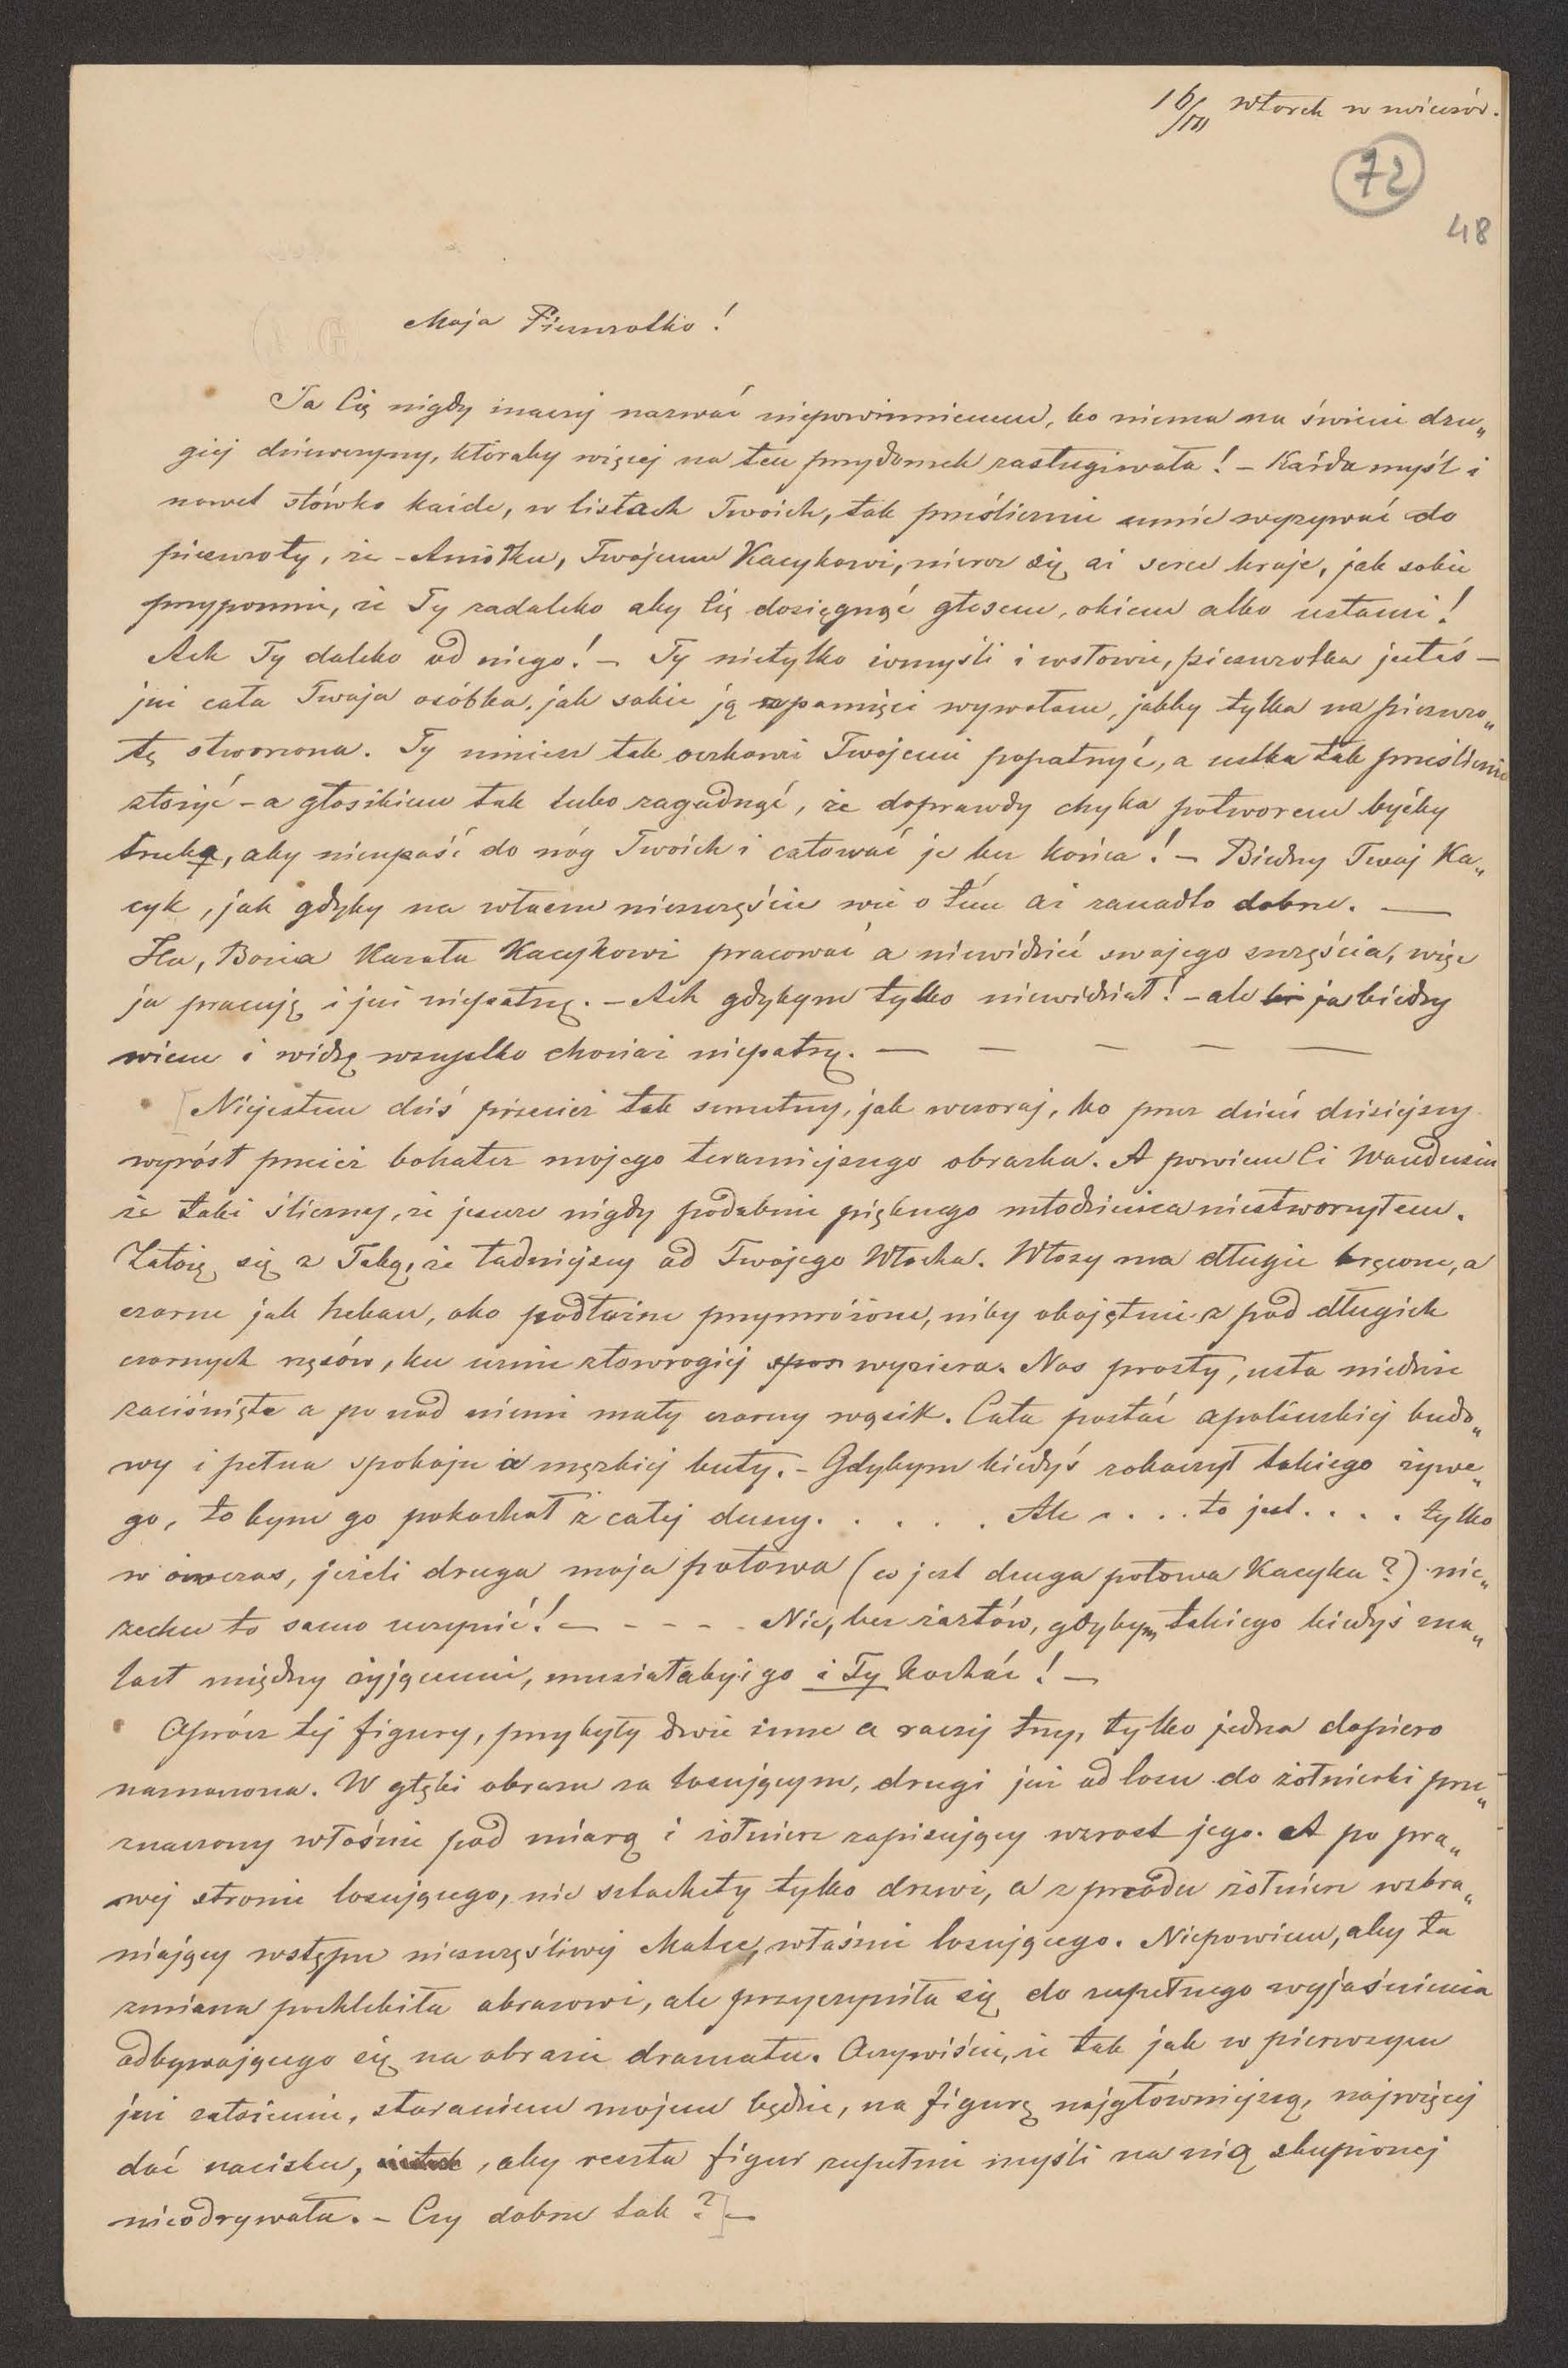 16/III wtorek w wieczór.
72
48
Moja Pieszczotko!
Ja Cię nigdy inaczej nazwać niepowinienem, bo niema na świecie dru„
giej dziewczyny, któraby więcej na ten przydomek zasługiwała! – Każda myśl i
nawet słówko każde, w listach Twoich, tak prześlicznie umie wyzywać do
pieszczoty, że – Aniołku, Twojemu Kacykowi, nieraz się aż serce kraje, jak sobie
przypomni, że Ty zadaleko aby Cię dosięgnąć głosem, okiem albo ustami!
Ach Ty daleko od niego! – Ty nietylko w myśli i w słowie, pieszczotka jesteś –
już cała Twoja osóbka, jak sobie ją w pamięci wywołam, jakby tylko na pieszczo„
tę stworzona. Ty umiesz tak oczkami Twojemi popatrzyć, a ustka tak prześlicznie
złożyć – a głosikiem tak lubo zagadnąć, że doprawdy chyba potworem byćby
trzeba, aby nieupaść do nóg Twoich i całować je bez końca! – Biedny Twój Ka„
cyk, jak gdyby na własne nieszczęście wie o tém aż zanadto dobrze. —
Ha, Bozia kazała Kacykowi pracować a niewidzieć swojego szczęścia, więc
ja pracuję i już niepatrzę. – Ach gdybym tylko niewidział! – ale ja biedny
wiem i widzę wszystko chociaż niepatrzę. — — — — —
Niejestem dziś przecież tak smutny, jak wczoraj, bo przez dzień dzisiejszy
wyrósł przecież bohater mojego teraźniejszego obrazka. A powiem Ci Wandusiu
że taki śliczny, że jeszcze nigdy podobnie pięknego młodzieńca niestworzyłem.
Założę się z Tobą, że ładniejszy od Twojego Włocha. Włosy ma długie kręcone, a
czarne jak heban, oko podłużne przymrożone, niby obojętnie z pod długich
czarnych rzęsów, ku urnie złowrogiej wyziera. Nos prosty, usta niedbie
zaciśnięte a po nad niemi mały czarny wąsik. Cała postać apolińskiej budo„
wy i pełna spokoju i męzkiej buty. – Gdybym kiedyś zobaczył takiego żywe„
go, to bym go pokochał z całej duszy. . . . . . Ale . . . . to jest . . . . tylko
w ówczas, jeżeli druga moja połowa (co jest druga połowa Kacyka?) nie„
zechce to samo uczynić! – - - - - Nie, bez żartów, gdybym takiego kiedyś zna„
lazł między żyjącemi, musiałabyś go i Ty kochać! –
Oprócz tej figury, przybyły dwie inne a raczej trzy, tylko jedna dopiero
naznaczona. W głębi obrazu za losującym, drugi już od losu do żołnierki prze„
znaczony właśnie pod miarą i żołnierz zapisujący wzrost jego. A po pra„
wej stronie losującego, nie szlachety tylko drzwi, a z przodu żołnierz wzbra„
niający wstępu nieszczęśliwej Matce, właśnie losującego. Niepowiem, aby ta
zmiana pochlebiła obrazowi, ale przyczyniła się do zupełnego wyjaśnienia
odbywającego się na obrazie dramatu. Oczywiście, że tak jak w pierwszym
już założeniu, staraniem mojem będzie, na figurę najgłówniejszą, najwięcej
dać nacisku, , aby reszta figur zupełnie myśli na nią skupionej
nieodrywała. – Czy dobrze tak? –